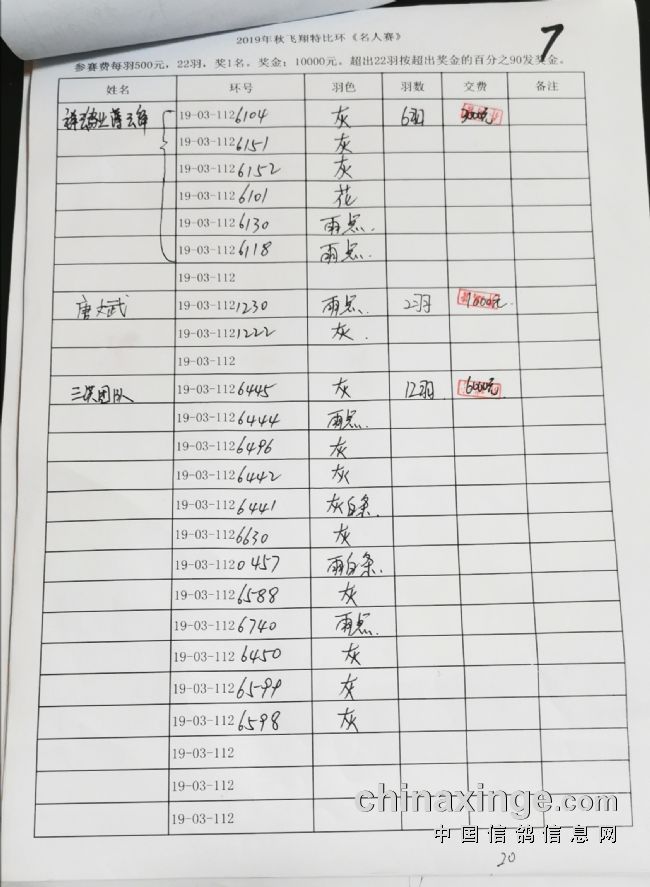 7
2019年秋飞翔特比环《名人赛》
参赛费每羽500元，22羽，奖1名。奖金：10000元。超出22羽按超出奖金的百分之90发奖金。
姓名 环号 羽色 羽数 交费 备注
19-03-112 6104 灰 6羽 3000元
19-03-112 6151 灰
19-03-112 6152 灰
19-03-112 6101 花
19-03-112 6130 雨点.
19-03-112 6118 雨点.
19-03-112
唐文武 19-03-112 1230 雨点. 2羽 1000元.
19-03-112 1222 灰.
19-03-112
团队 19-03-112 6445 灰 12羽 6000元
19-03-112 6444 雨点.
19-03-112 6496 灰
19-03-112 6442 灰
19-03-112 6441 灰白条.
19-03-112 6630 灰
19-03-112 0457 雨白条.
19-03-112 6588 灰
19-03-112 6740 雨点.
19-03-112 6450 灰
19-03-112 6599 灰
19-03-112 6598 灰
19-03-112
19-03-112
19-03-112
chinaxinge.com
中国信鸽信息网
20